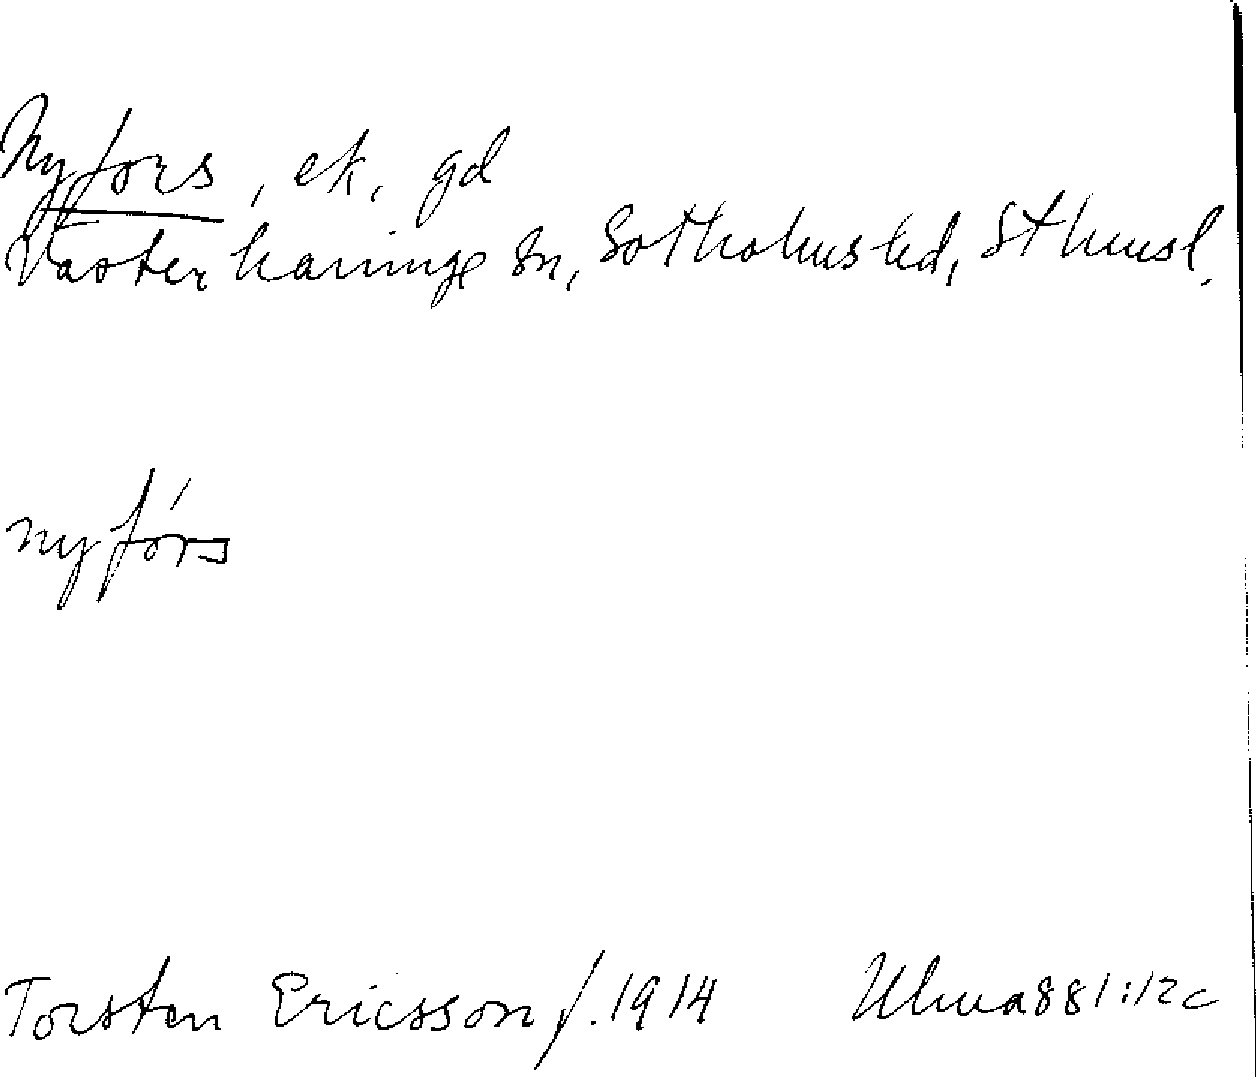 Nyfors, ek, gd
Västerhaninge sn, Sotholms hd, Sthmsl.
nyfórs
Torsten Ericsson f. 1914 Ulma 881:12c